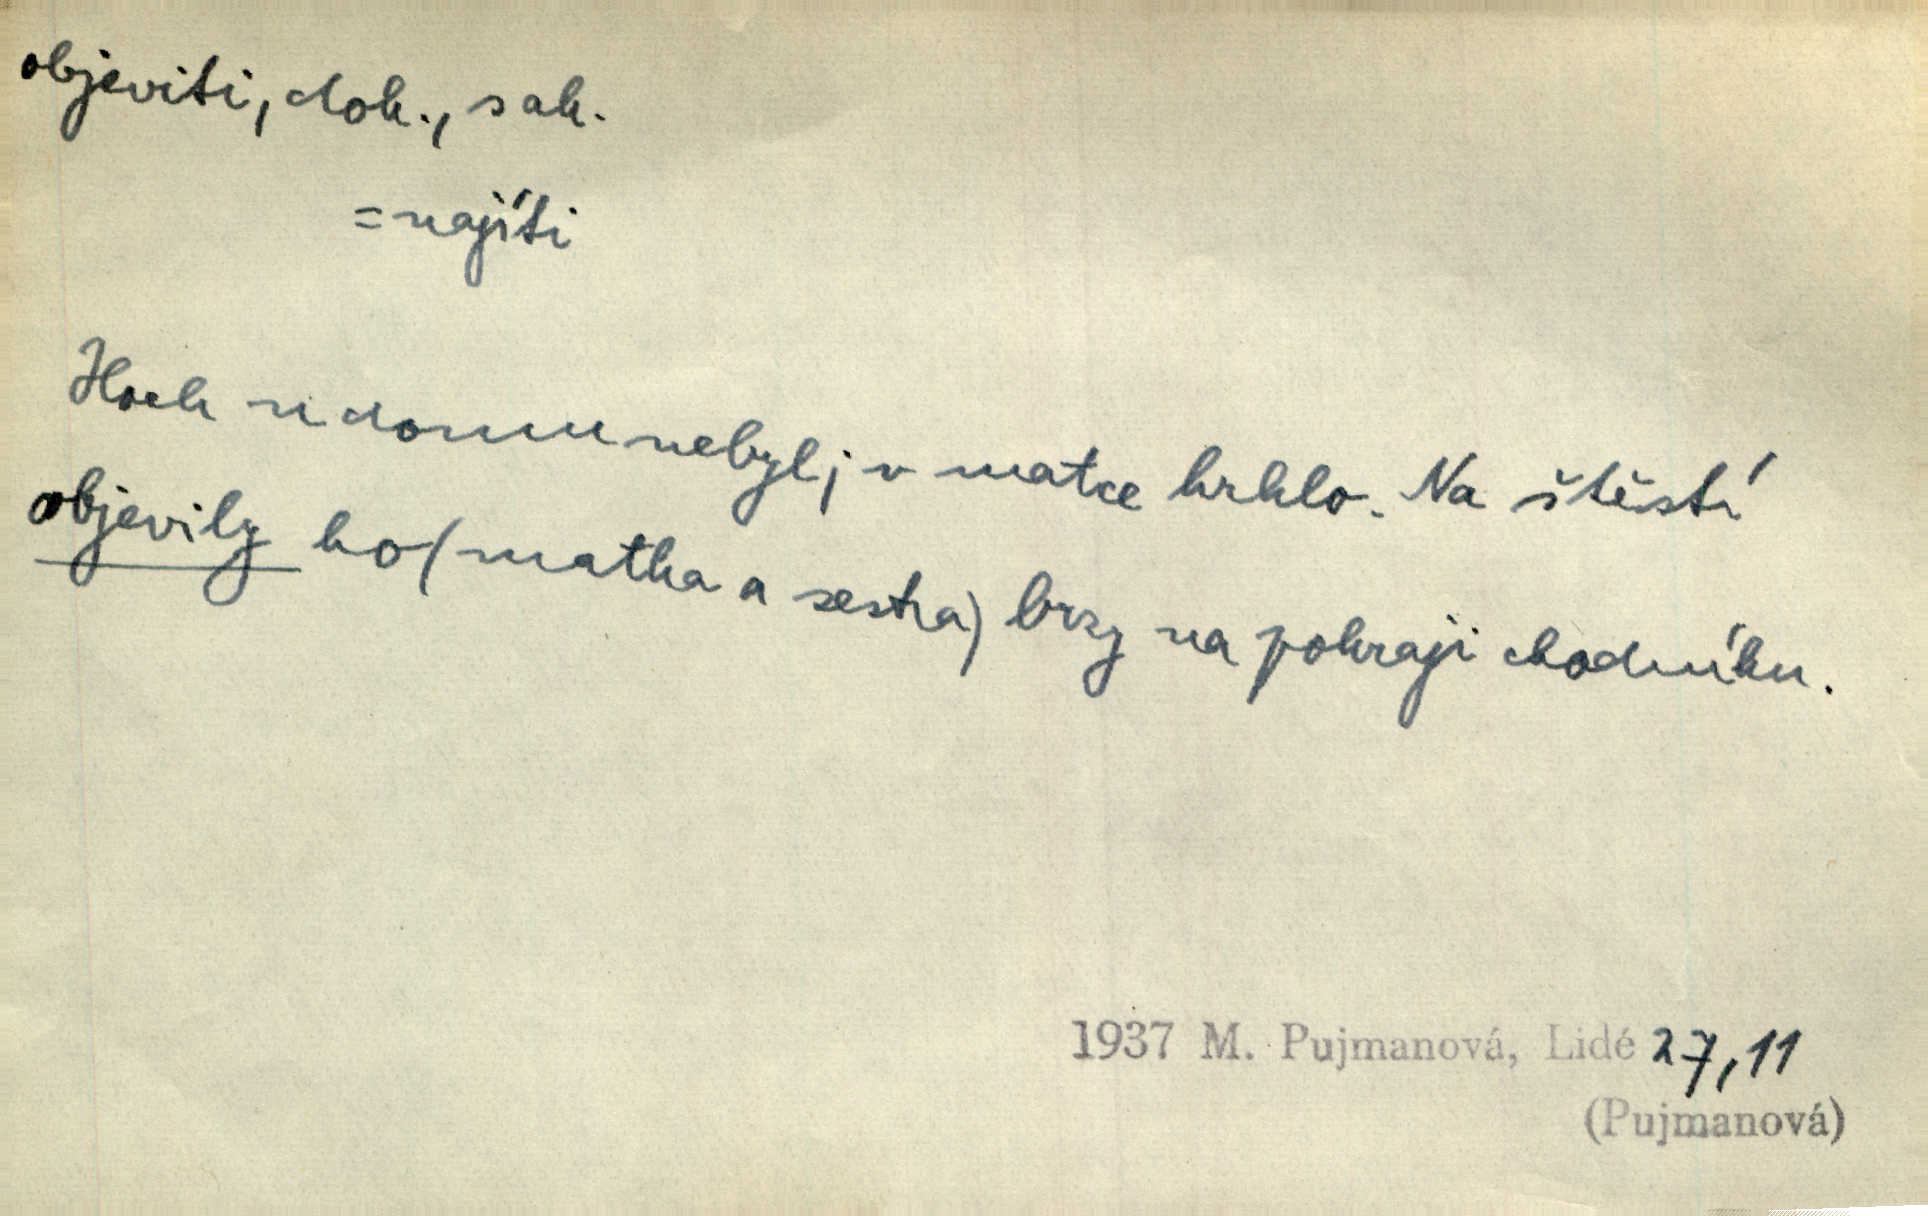 objeviti, dok., sak.
=najíti
Hoch u domu nebyl; v matce hrklo. Na štěstí
objevily ho (matka a sestra) brzy na pokraji chodníku.
1937 M. Pujmanová, Lidé 27,11
(Pujmanová)